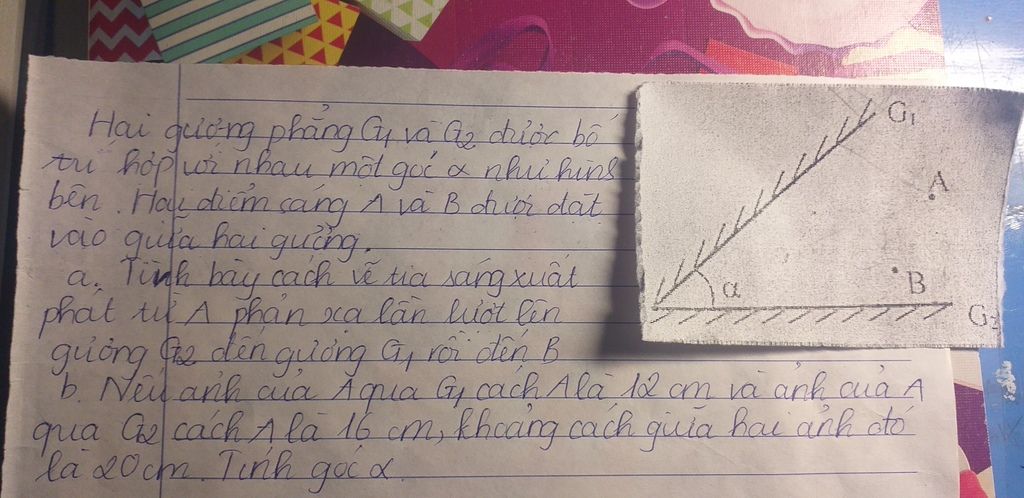 Hai gương phẳng G1 và G2 được bố
trí hợp với nhau một góc α như hình
bên. Hai điểm sáng A và B được đặt
vào giữa hai gương.
a. Trình bày cách vẽ tia sáng xuất
phát từ A phản xạ lần lượt lên
gương G2 đến gương G1 rồi đến B
b. Nếu ảnh của A qua G1 cách A là 12 cm và ảnh của A
qua G2 cách A là 16 cm, khoảng cách giữa hai ảnh đó
là 20cm. Tính góc α.
G1
A
B
α
G2